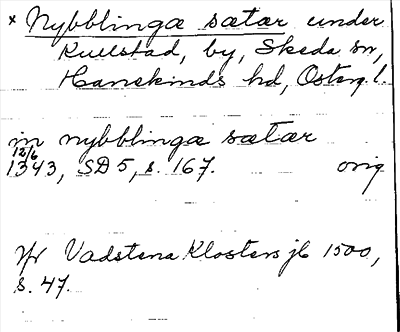 * Nybblinga sætær under
Kullstad, by, Skeda sn,
Hanekinds hd, Österg l.
in nybblinga sætær
12/6
1343, SD 5, s. 167. orig
Jfr Vadstena Klosters jb 1500,
s. 47.